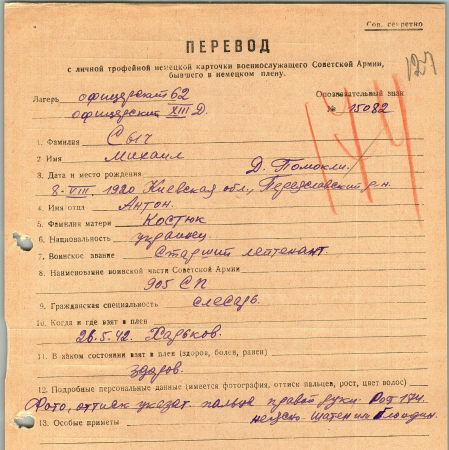 Сов. секретно
ПЕРЕВОД
с личной трофейной немецкой карточки военнослужащего Советской Армии,
бывшего в немецком плену.
127
Лагерь офицерский 62
офицерский XIII Д.
Опознавательный знак
№ 15082
1. Фамилия Сыч
2 Имя Михаил
3. Дата и место рождения Д. Помокли.
8-VIII. 1920 Киевская обл., Переяславский р-н.
4. Имя отца Антон.
5. Фамилия матери Костюк
6. Национальность украинец
7. Воинское звание Старший лейтенант.
8. Наименование воинской части Советской Армии
905 СП
9. Гражданская специальность слесарь.
10. Когда и где взят в плен
28.5.42. Харьков.
11. В каком состоянии взят в плен (здоров, болен, ранен)
здоров.
12. Подробные персональные данные (имеется фотография, оттиск пальцев, рост, цвет волос)
Фото, оттиск указат. пальца правой руки. Рост 174.
13. Особые приметы шатенин блондин.